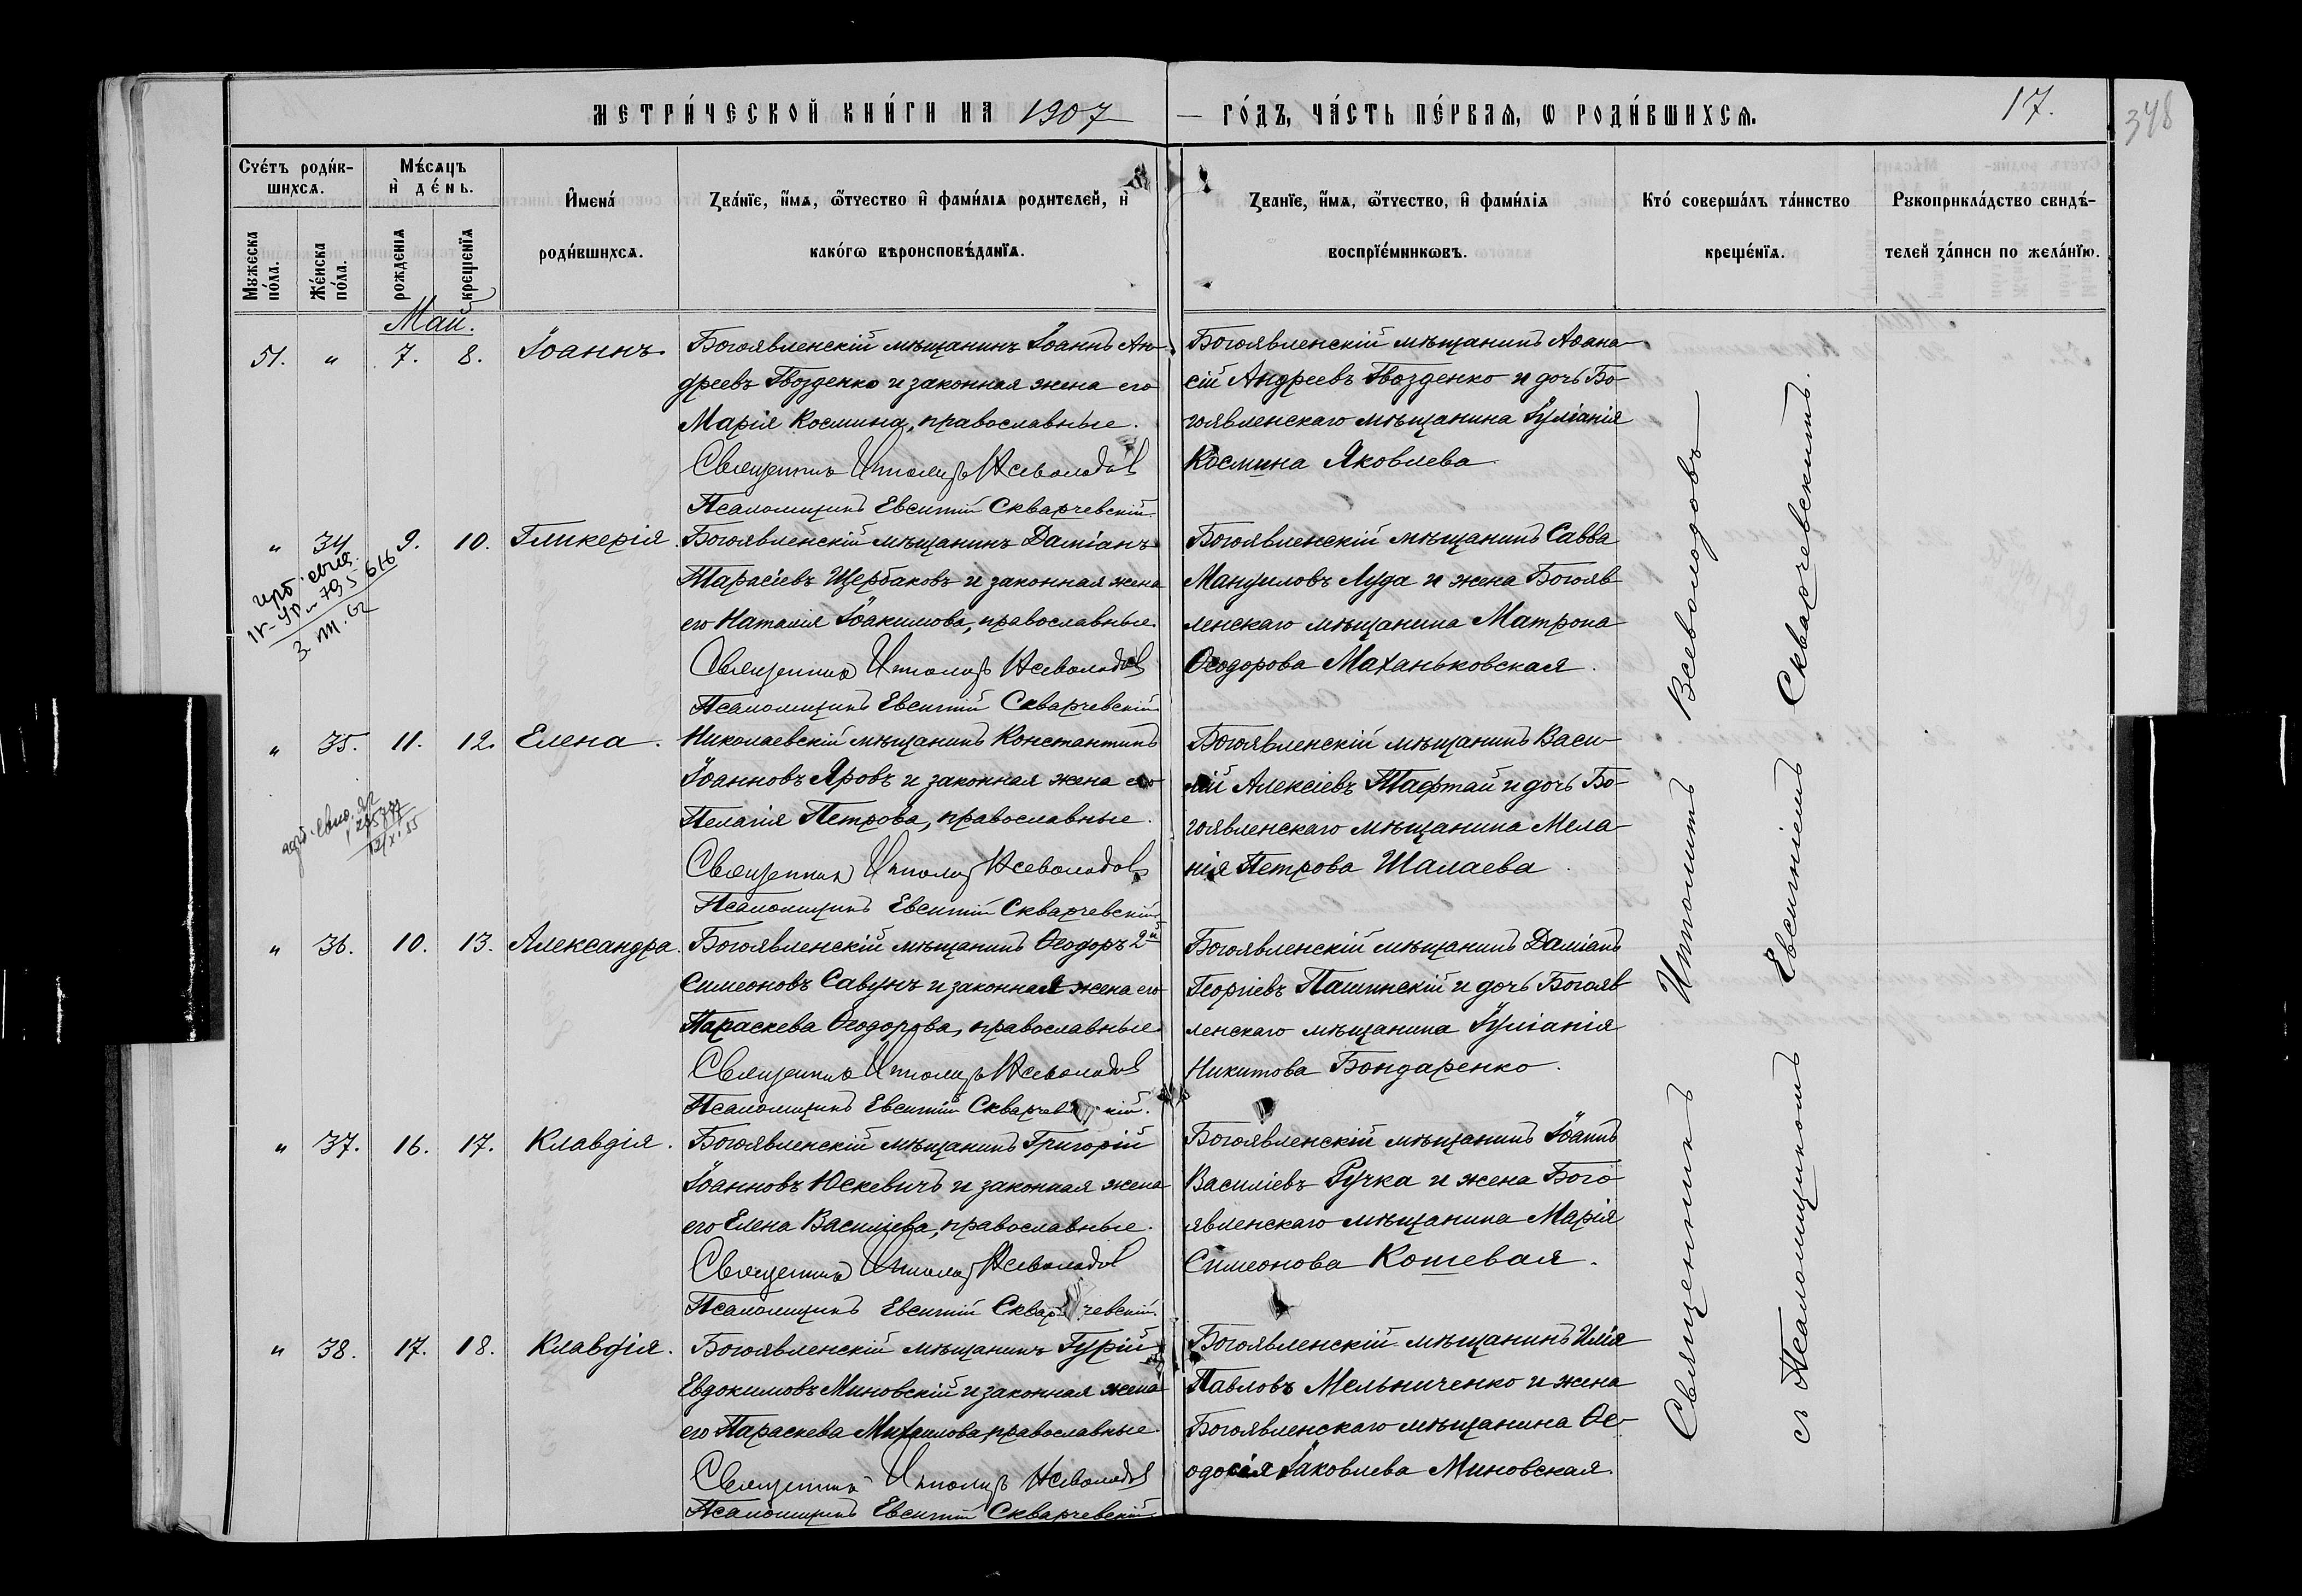 МЕТРИ́ЧЕСКОЙ КНИ́ГИ НА 1907
— ГО́ДЪ, ЧА́СТЬ ПЕ́РВАѦ, Ѡ РОДИ́ВШИХСѦ.
17.
348
Счетъ роди́в-
шихсѧ.
Мꙋжеска по́ла.
Же́нска по́ла.
Мѣ́сѧцъ
и҆ де́нь.
рожденїѧ
крещенїѧ
И҆мена́
роди́вшихсѧ.
Зва́нїе, и҆́мѧ, ѻ҆́тчество и҆ фами́лїѧ родителей, и҆
како́гѡ вѣроисповѣ́данїѧ.
Зва́нїе, и҆́мѧ, ѻ҆́тчество, и҆ фами́лїѧ
воспрїе́мникѡвъ.
Кто́ соверша́лъ та́инство
креще́нїѧ.
Рꙋкоприкла́дство свидѣ́-
телей за́писи по жела́нїю.
Май.
51. " 7. 8. Іоаннъ.
Богоявленскій мѣщанинъ Іоаннъ Ан-
дреевъ Гвозденко и законная жена его
Марія Космина, православные.
Священникъ Ипполитъ Всеволодовъ
Псаломщикъ Евсигній Скварчевскій.
Богоявленскій мѣщанинъ Аѳана-
сій Андреевъ Гвозденко и дочь Бо-
гоявленскаго мѣщанина Іуліанія
Космина Яковлева
" 34 9. 10. Гликерія.
3. III. 62
Богоявленскій мѣщанинъ Даміанъ
Тарасіевъ Щербаковъ и законная жена
его Наталія Іоакимова, православные.
Священникъ Ипполитъ Всеволодовъ
Псаломщикъ Евсигній Скварчевскій
Богоявленскій мѣщанинъ Савва
Мануиловъ Луда и жена Богояв-
ленскаго мѣщанина Матрона
Ѳеодорова Маханьковская.
" 35. 11. 12. Елена.
Николаевскій мѣщанинъ Константинъ
Іоанновъ Яровъ и законная жена его
Пелагія Петрова, православные.
Священникъ Ипполитъ Всеволодовъ
Псаломщикъ Евсигній Скварчевскій
Богоявленскій мѣщанинъ Васи-
лій Алексіевъ Тафтай и дочь Бо-
гоявленскаго мѣщанина Мела-
нія Петрова Шалаева.
" 36. 10. 13. Александра.
Богоявленскій мѣщанинъ Ѳеодоръ 2й
Симеоновъ Савунъ и законная жена его
Параскева Ѳеодорова, православные.
Священникъ Ипполитъ Всеволодовъ
Псаломщикъ Евсигній Скварчевскій.
Богоявленскій мѣщанинъ Даміанъ
Георгіевъ Пашинскій и дочь Богояв
ленскаго мѣщанина Іуліанія
Никитова Бондаренко.
" 37. 16. 17. Клавдія.
Богоявленскій мѣщанинъ Григорій
Іоанновъ Юскевичъ и законная жена
его Елена Василіева, православные.
Священникъ Ипполитъ Всеволодовъ
Псаломщикъ Евсигній Скварчевскій.
Богоявленскій мѣщанинъ Іоаннъ
Василіевъ Ручка и жена Бого-
явленскаго мѣщанина Марія
Симеонова Кошевая.
" 38. 17. 18. Клавдія.
Богоявленскій мѣщанинъ Гурій
Евдокимовъ Миновскій и законная жена
его Параскева Михаилова, православные.
Священникъ Ипполитъ Всеволодовъ
Псаломщикъ Евсигній Скварчевскій
Богоявленскій мѣщанинъ Илія
Павловъ Мельниченко и жена
Богоявленскаго мѣщанина Ѳе-
одосія Іаковлева Миновская.
Священникъ Ипполитъ Всеволодовъ
съ Псаломщикомъ Евсигніемъ Скварчевскимъ.